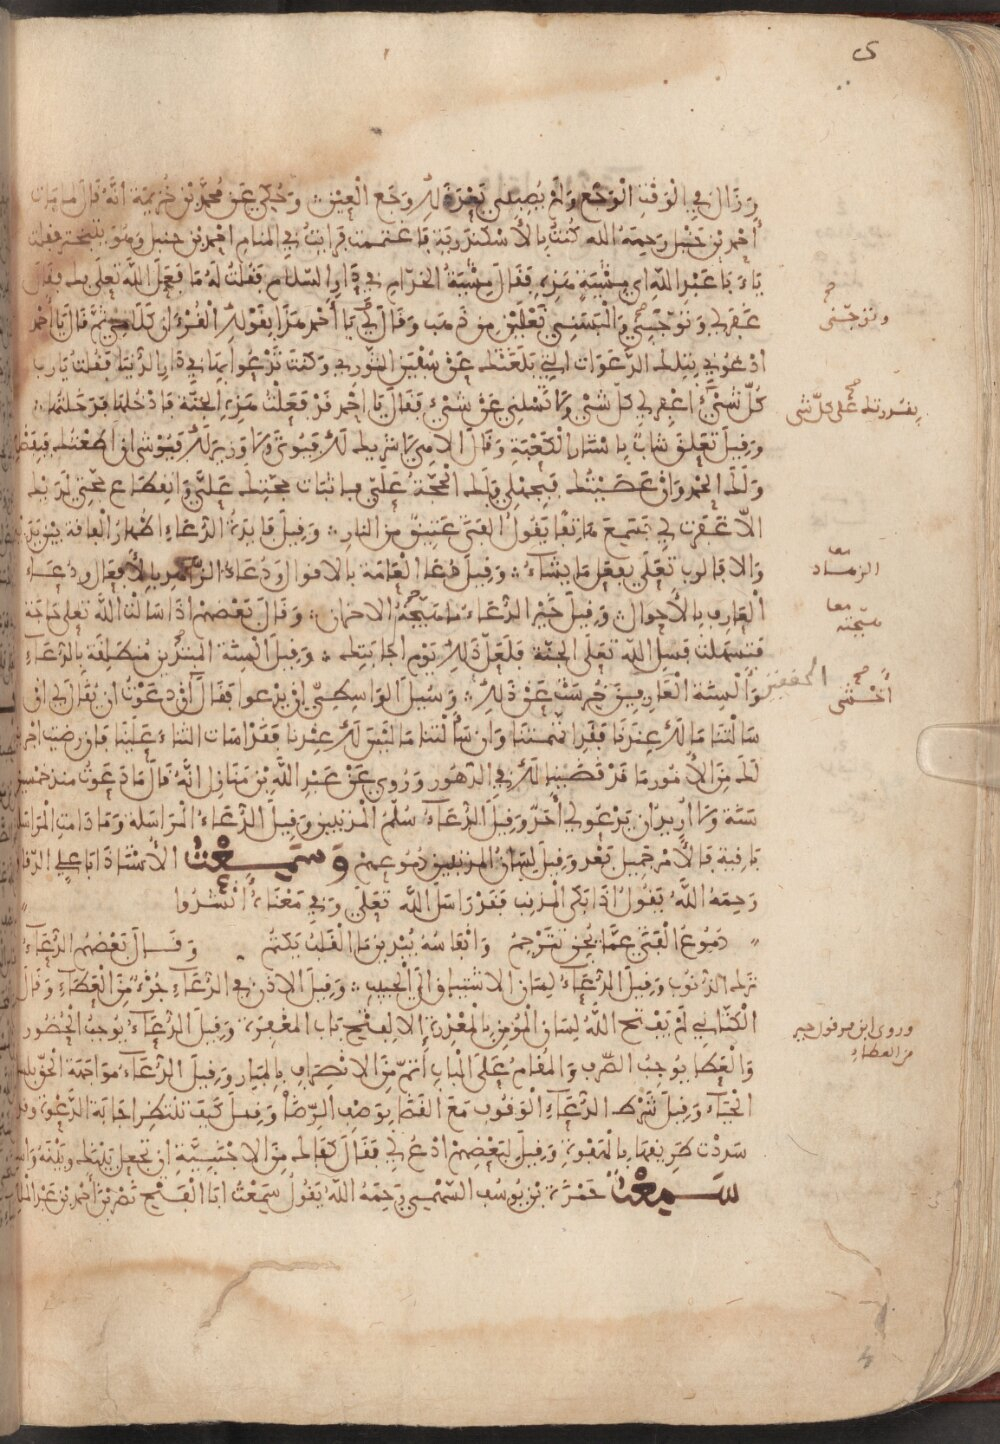 وزال في الوقت الوجع ولم يصبني بعد ذلك وجع العين وحكي عن محمد بن خزيمة انه قال لما مات
أحمد بن حنبل رحمه الله كنت بالأسكندرية فاغتممت فرايت في المنام احمد بن حنبل وهو يتبختر فقلت
يا أبا عبد الله اي مشية هذه فقال مشية الخدام في دار السلام فقلت له ما فعل الله تعلى بك فقال
غفر لي وتوجني وألبسني نعلين من ذهب وقال لي يا أحمد هذا بقولك القرءان كلامي ثم قال يا أحمد
ادعوني بتلك الدعوات التي بلغتك عن سفين الثوري وكنت تدعوا بها في دار الدنيا فقلت يارب
كل شيء اغفر لي كل شيء ولا تسلني عن شيء فقال يا أحمد قد فعلت هذه الجنة فادخلها فدخلتها
وقيل تعلق شاب باستار الكعبة وقال الاهي لا شريك لك فيوتى ولا وزير لك فيرشى ان اطعتك فبفضلك
ولك الحمد وان عصيتك فبجهلي ولك الحجة علي فباثبات حجتك علي وانقطاع حجتي لديك
الا غفرت لي فسمع هاتفا يقول الفتى عتيق من النار وقيل فايدة الدعاء اظهار الفاقة بين يديه
والا فالرب تعلى يفعل ما يشاء وقيل دعاء العامة بالاقوال ودعاء الزهاد بالأفعال ودعاء
العارف بالأحوال وقيل خير الدعاء ما هيجه الاحزان وقال بعضهم اذا سالت الله تعلى حاجة
فتسهلت فسل الله تعلى الجنة فلعل ذلك يوم اجابتك وقيل السنة المبتدين منطلقة بالدعاء
وألسنة العارفين خرست عن ذلك وسيل الواسطي ان يدعوا فقال أخشى ان دعوت ان يقال لي ان
سالتنا ما لك عندنا فقد اتهمتنا وان سألتنا ما ليس لك عندنا فقد اسات الثناء علينا وان رضيت اجرينا
لك من الأمور ما قد قضينا لك في الدهور وروي عن عبد الله بن منازل انه قال ما دعوت منذ خمسين
سنة ولا اريد ان يدعو لي أحد وقيل الدعاء سلم المذنبين وقيل الدعاء المراسلة وما دامت المراسلة
باقية فالأمر جميل بعد وقيل لسان المذنبين دموعهم وسمعت الأستاذ ابا علي الدقاق
رحمه الله يقول اذا بكى المذنب فقد راسل الله تعلى وفي معناه انشدوا
دموع الفتى عما يجن تترجم وانفاسه يبدين ما القلب يكتم وقال بعضهم الدعاء
ترك الذنوب وقيل الدعاء لسان الاشتياق الى الحبيب وقيل الاذن في الدعاء خير من العطاء وقال
الكتاني لم يفتح الله لسان المؤمن بالمعذرة الا لفتح باب المغفرة وقيل الدعاء يوجب الحضور
والعطا يوجب الصرف والمقام على الباب أتم من الانصراف بالمبار وقيل الدعاء مواجهة الحق بلسان
الحياء وقيل شرط الدعاء الوقوف مع القضا بوصف الرضا وقيل كيف تنتظر اجابة الدعوة وقد
سددت طريقها بالهفوة وقيل لبعضهم ادع لي فقال كفاك من الاجنبية ان تجعل بينك وبينه واسطة
سمعت حمزة بن يوسف السهمي رحمه الله يقول سمعت ابا الفتح نصر بن أحمد بن عبد الملك
وتوجني صح
بقدرتك على كل شي صح
الزهاد معا
هيجته معا
أخشى صح
المتحققين
وروى ابن مرقول خير
من العطاء